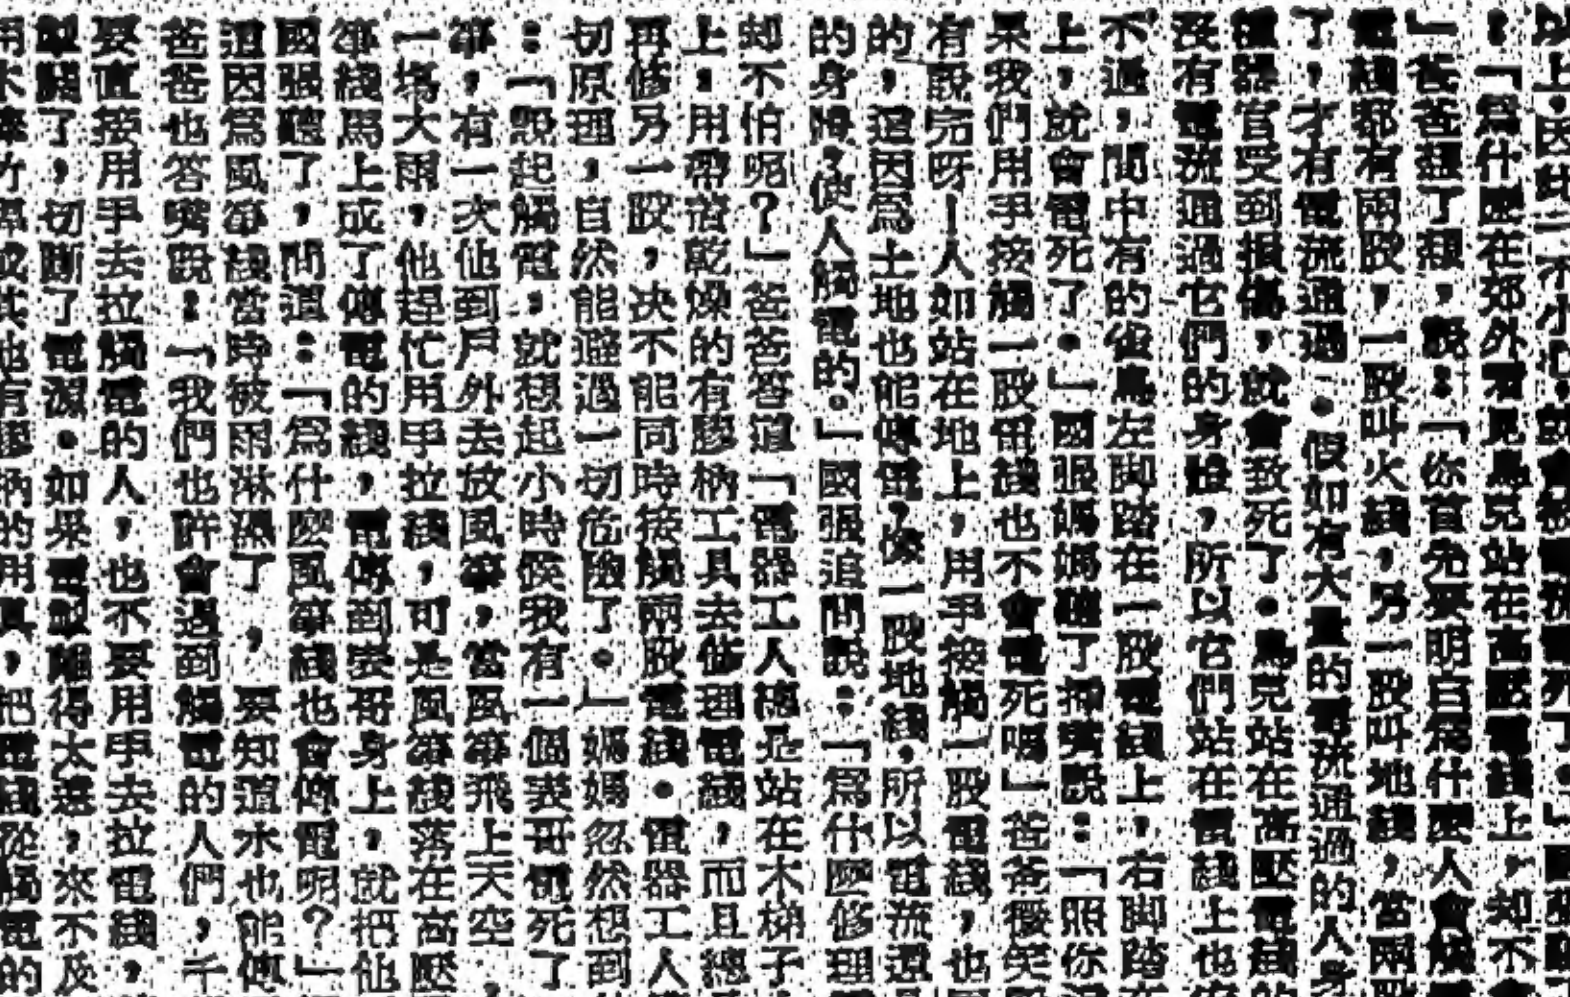 以上。因此一不小心。就會被
：「爲什麽在郊外看見鳥兒站在高壓電綫上，却不
」爸爸想了想，說：「你首先要明白爲什麽人會觸
電綫都有兩股，一股叫火綫，另一股叫地綫，當兩
了，才有電流通過。假如有大量的電流通過的人身
器官受到損傷，就會致死了。鳥兒站在高壓電綫
没有電流通過它們的身體，所以它們站在電綫上也
不過，間中有的雀鳥左脚踏在一股電綫上，右脚踏
上，就會電死了。」國强媽媽聽了插嘴說：「照你
果我們用手接觸一股電綫也不會電死嗎」爸爸微笑
有說完呀—人如站在地上，用手接觸一股電綫，也
的，這因爲土地也能傳電，像一股地綫，所以電流還
的身體，使人觸電的。」國强追問說：「爲什麽修理
却不怕呢？」爸爸答道「電器工人總是站在木梯子
上，用帶着乾燥的有膠柄工具去修理電綫，而且總
再修另一股，决不能同時接觸兩股電綫。電器工人
切原理，自然能避過一切危險了。」媽媽忽然想到
：「說起觸電，就想起小時候我有一個表哥觸死了
，有一次他到戶外去放風箏，當風箏飛上天空
一塲大雨，他趕忙用手拉綫，可是風箏綫落在高壓
箏綫馬上成了傳電的綫，電傳到表哥身上，就把他
國强聽了，問道：「爲什麽風箏綫也會傳電呢？」
這因爲風箏綫當時被雨淋濕了，要知道水也能傳
爸爸也答嘴說：「我們也許會遇到觸電的人們，千
要直接用手去拉觸電的人，也不要用手去拉電綫，
了，切斷了電源。如果電掣離得太遠，來不及
用木棒竹竿或其他有膠柄的用具，把電綫從觸電的